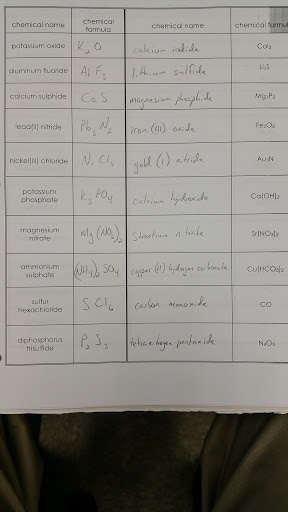 chemical name chemical formula chemical name chemical formul
potassium oxide K2O calcium iodide CaI2
aluminum fluoride AlF3 lithium sulfide Li2S
calcium sulphide CaS magnesium phosphide Mg3P2
lead(II) nitride Pb3N2 iron (III) oxide Fe2O3
nickel(III) chloride NiCl3 gold (I) nitride Au3N
potassium phosphate K3PO4 calcium hydroxide Ca(OH)2
magnesium nitrate Mg(NO3)2 Strontium nitrate Sr(NO3)2
ammonium sulphate (NH4)2SO4 copper (II) hydrogen carbonate Cu(HCO3)2
sulfur hexachloride SCl6 carbon monoxide CO
diphosphorus trisulfide P2S3 tetranitrogen pentoxide